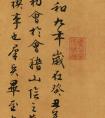 和九年歲在癸丑
初會于會稽山陰之
事也羣賢畢至